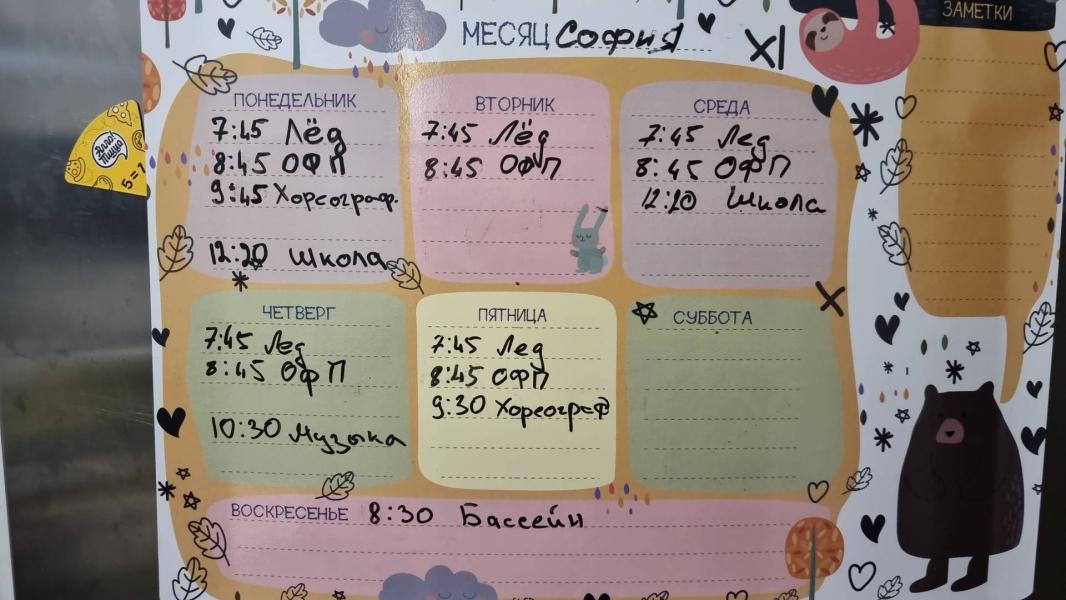 ЗАМЕТКИ
МЕСЯЦ София XI
ПОНЕДЕЛЬНИК
7:45 Лёд
8:45 ОФП
9:45 Хореограф.
12:20 школа
ВТОРНИК
7:45 Лёд
8:45 ОФП
СРЕДА
7:45 Лед
8:45 ОФП
12:20 Школа
ЧЕТВЕРГ
7:45 Лед
8:45 ОФП
10:30 Музыка
ПЯТНИЦА
7:45 Лед
8:45 ОФП
9:30 Хореограф
СУББОТА
ВОСКРЕСЕНЬЕ 8:30 Бассейн
Алло!
Пицца
5=1